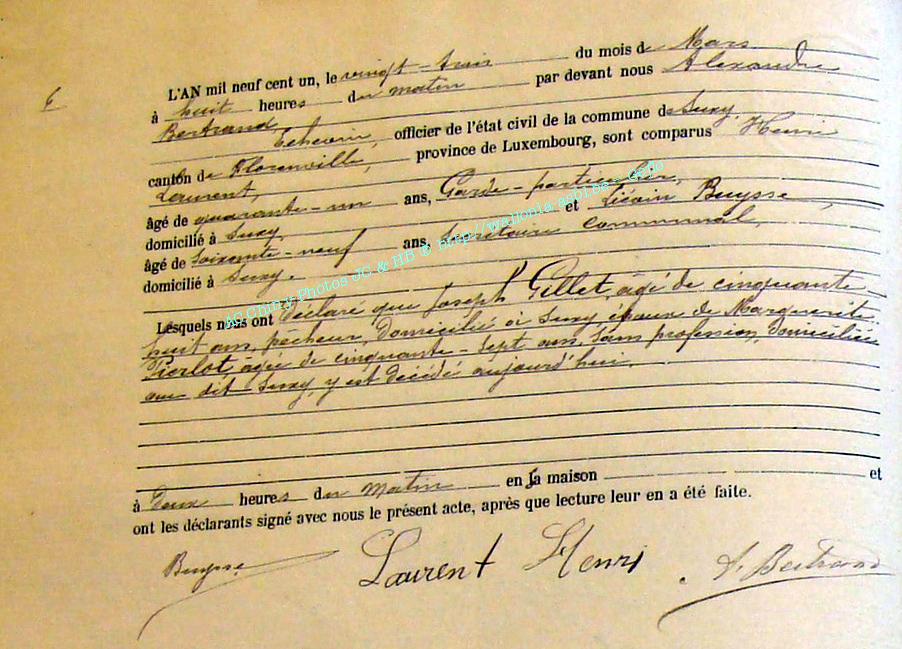 6
L'AN mil neuf cent un, le vingt-trois du mois de Mars
à huit heures du matin par devant nous Alexandre
Bertrand,
Echevin, officier de l'état civil de la commune de Suxy,
canton de Florenville, province de Luxembourg, sont comparus Henri
Laurent,
âgé de quarante-un ans, Garde-particulier,
domicilié à Suxy, et Buysse,
âgé de soixante-neuf ans, Secrétaire communal,
domicilié à Suxy.
Lesquels nous ont déclaré que Joseph Gillet, âgé de cinquante-
huit ans, pêcheur, domicilié à Suxy, époux de Marguerite
Pierlot, âgée de cinquante-sept ans, sans profession, domiciliée
au dit Suxy, y est décédé aujourd'hui
à deux heures du matin en sa maison et
ont les déclarants signé avec nous le présent acte, après que lecture leur en a été faite.
Buysse Laurent Henri A. Bertrand
AC Chiny Photos JC & HB © http://wallonia-asbl.be